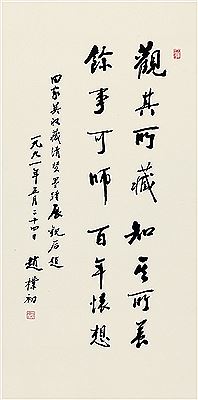 觀其所藏知其所養
餘事可師百年懷想
田家英收藏清賢墨迹展观后題
一九九一年五月二十四日
趙樸初